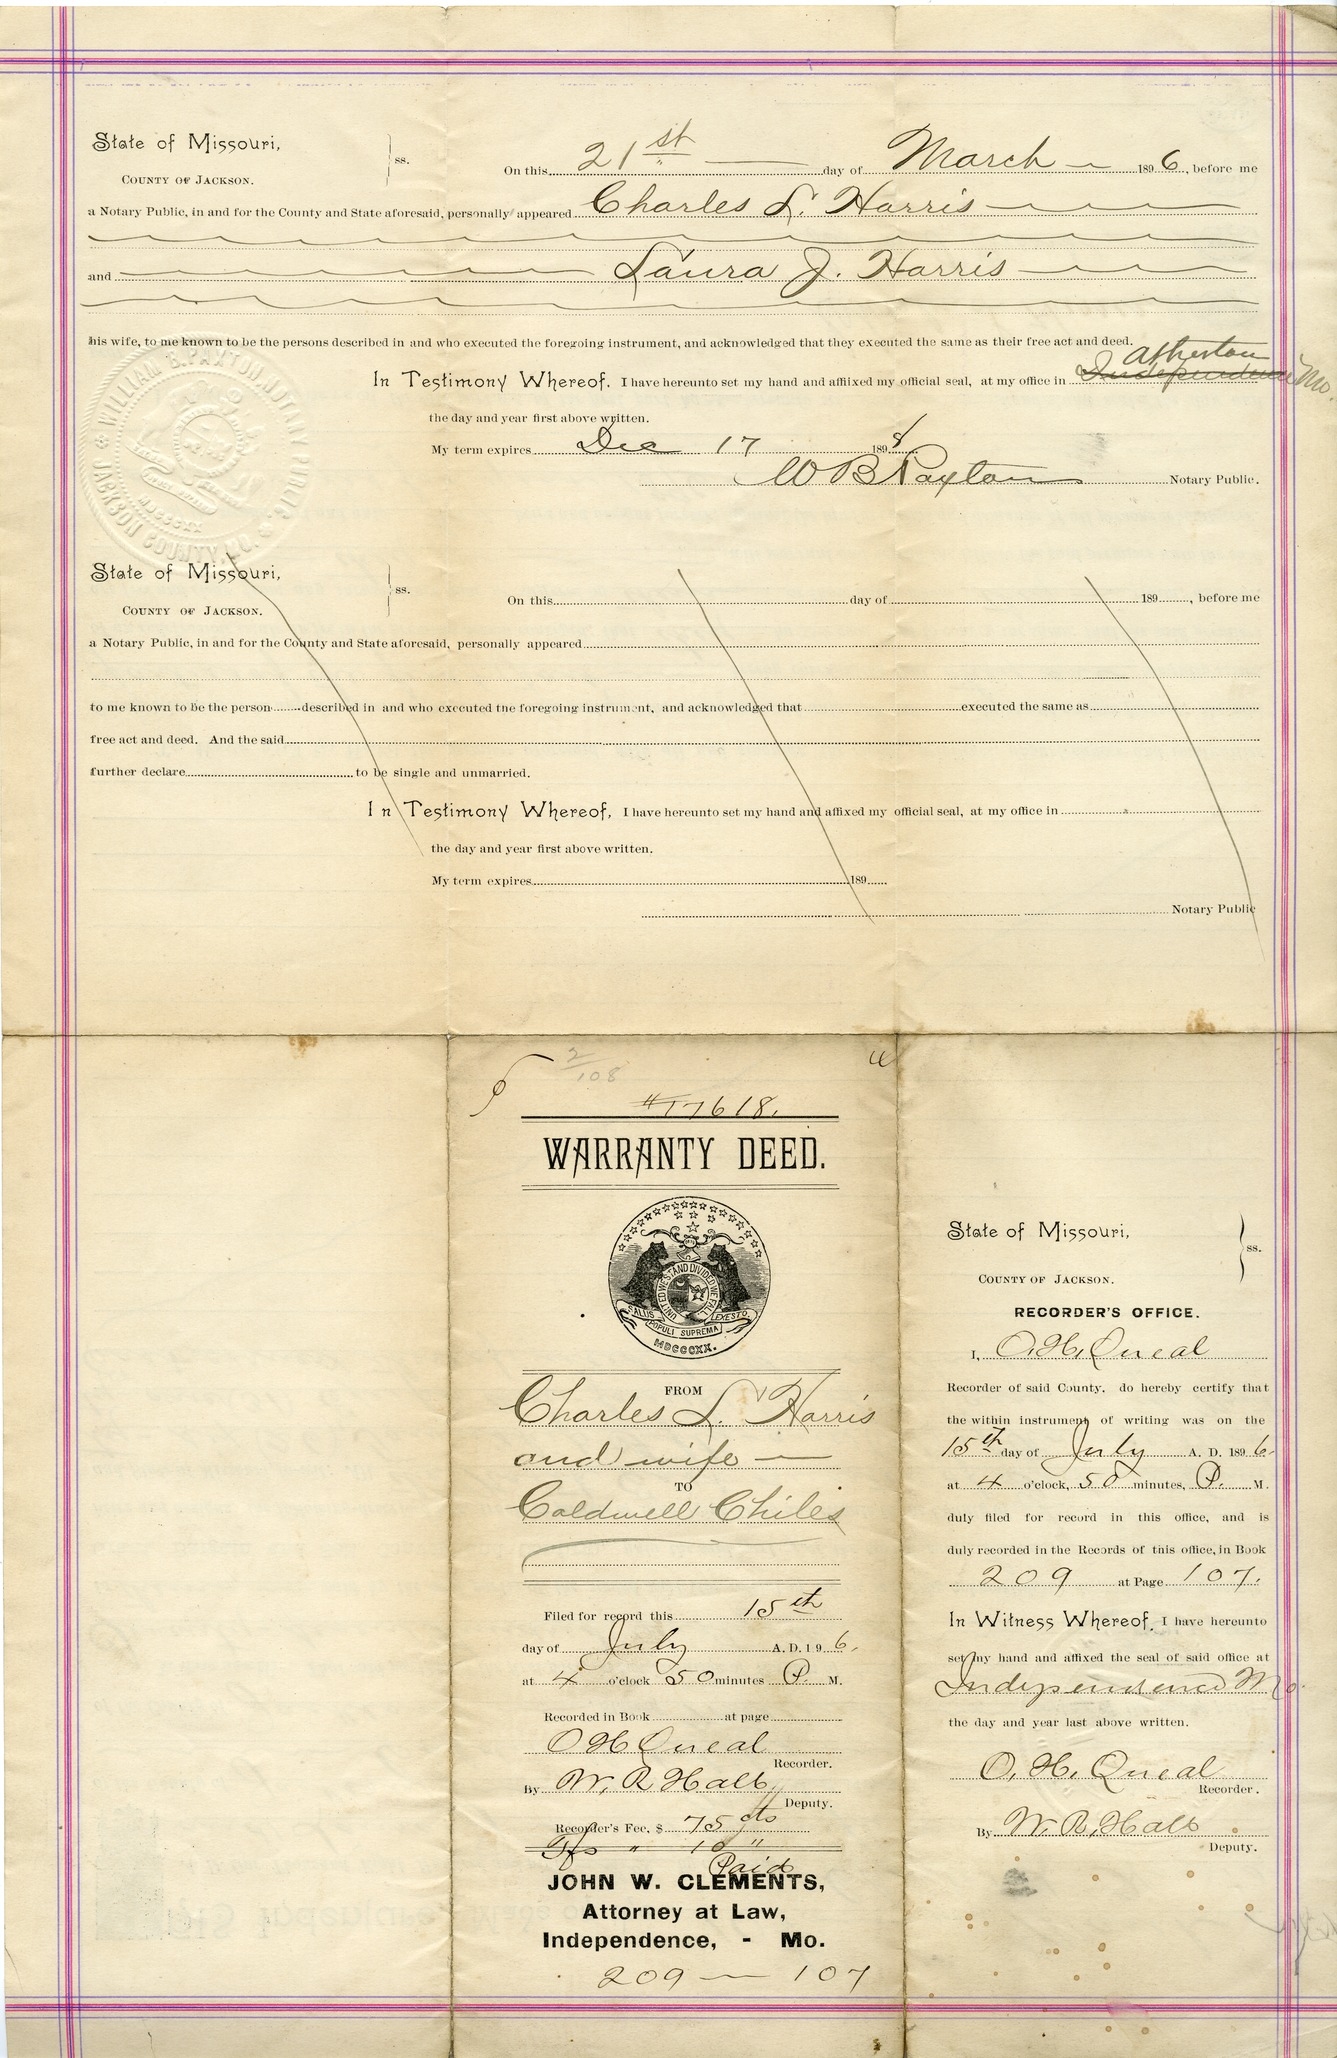 State of Missouri,
COUNTY OF JACKSON.
ss.
On this 21st day of March 1896, before me
a Notary Public, in and for the County and State aforesaid, personally appeared Charles L. Harris
and Laura J. Harris
his wife, to me known to be the persons described in and who executed the foregoing instrument, and acknowledged that they executed the same as their free act and deed.
Atherton
In Testimony Whereof, I have hereunto set my hand and affixed my official seal, at my office in Independence Mo.
the day and year first above written.
My term expires Dec 17 1898
W B Paxton Notary Public.
WILLIAM B. PAXTON, NOTARY PUBLIC
JACKSON COUNTY, MO.
MDCCCXX
State of Missouri,
COUNTY OF JACKSON.
ss.
On this day of 189 , before me
a Notary Public, in and for the County and State aforesaid, personally appeared
to me known to be the person described in and who executed the foregoing instrument, and acknowledged that executed the same as
free act and deed. And the said
further declare to be single and unmarried.
In Testimony Whereof, I have hereunto set my hand and affixed my official seal, at my office in
the day and year first above written.
My term expires 189
Notary Public
2/108
#17618.
WARRANTY DEED.
UNITED WE STAND DIVIDED WE FALL
SALUS POPULI SUPREMA LEX ESTO
MDCCCXX.
FROM
Charles L. Harris
and wife
TO
Caldwell Chiles
Filed for record this 15th
day of July A.D. 1 9 6.
at 4 o'clock 50 minutes P. M.
Recorded in Book at page
O H Queal
Recorder.
By W. R Hall
Deputy.
Recorder's Fee, $ 75 cts
" 10 "
Paid
JOHN W. CLEMENTS,
Attorney at Law,
Independence, - Mo.
209 — 107
State of Missouri,
COUNTY OF JACKSON.
ss.
RECORDER'S OFFICE.
I, O. H. Queal
Recorder of said County, do hereby certify that
the within instrument of writing was on the
15th day of July A. D. 1896
at 4 o'clock, 50 minutes, P. M.
duly filed for record in this office, and is
duly recorded in the Records of this office, in Book
209 at Page 107.
In Witness Whereof, I have hereunto
set my hand and affixed the seal of said office at
Independence Mo.
the day and year last above written.
O. H. Queal
Recorder.
By W. R. Hall
Deputy.